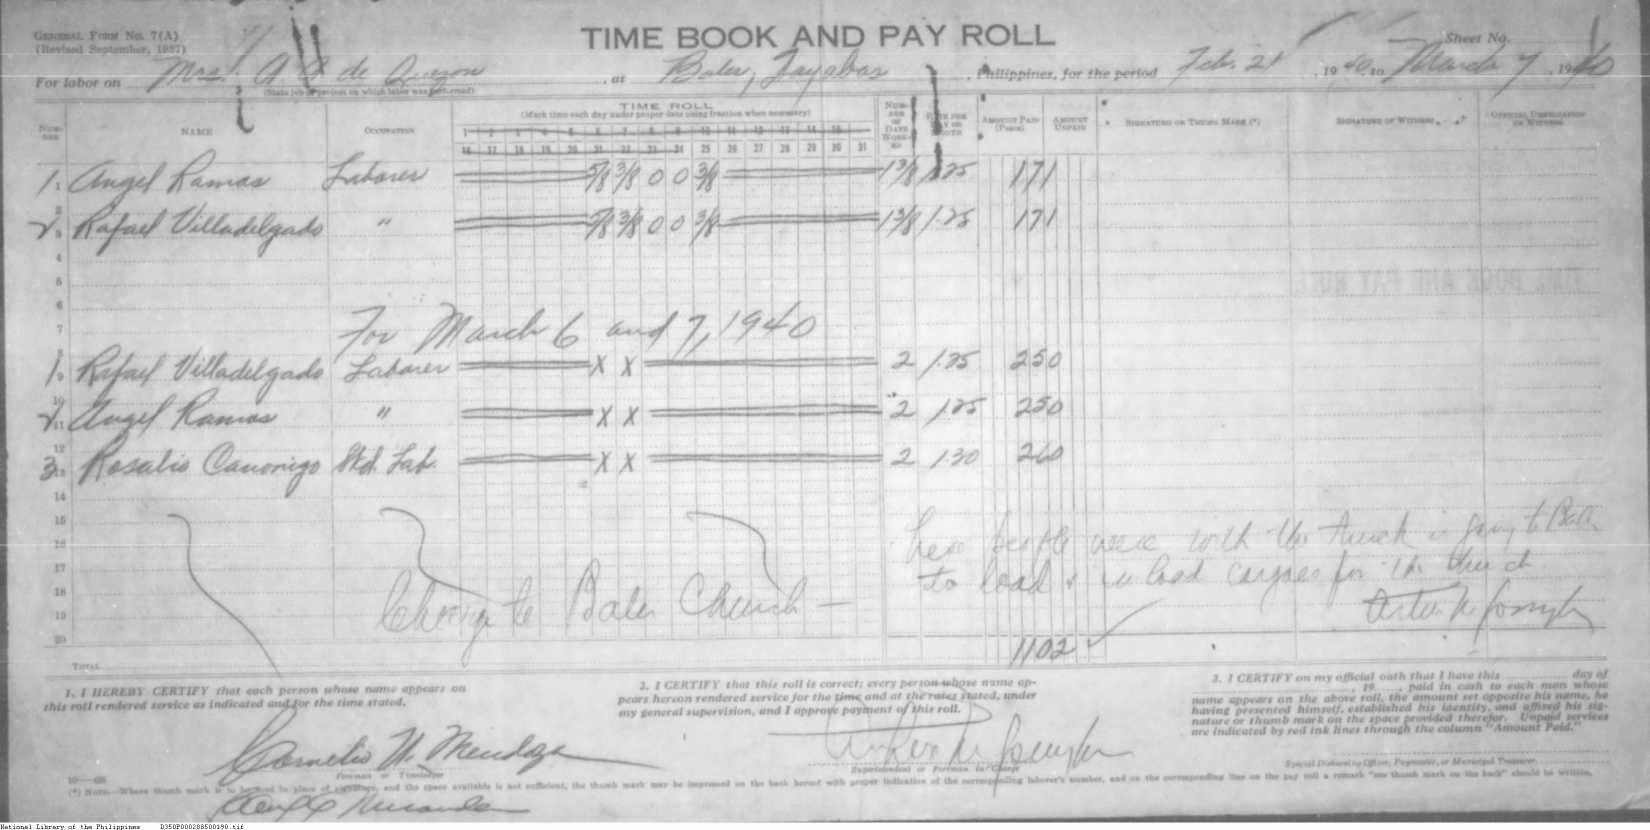 GENERAL FORM No. 7(A)
(Revised September, 1937)
TIME BOOK AND PAY ROLL
Sheet No.
For labor on Mrs. A. A. de Quezon, at Baler, Tayabas, Philippines, for the period Feb. 21, 1940, to March 7, 1940
(State job or period on which labor was performed)
NUMBER NAME OCCUPATION TIME ROLL
(Mark time each day under proper date using fraction when necessary)
1 2 3 4 5 6 7 8 9 10 11 12 13 14 15
16 17 18 19 20 21 22 23 24 25 26 27 28 29 30 31
NUMBER OF DAYS WORKED RATE PER DAY OR MONTH AMOUNT PAID (Pesos) AMOUNT UNPAID SIGNATURE OR THUMB MARK (*) SIGNATURE OF WITNESS OFFICIAL DESIGNATION OF WITNESS
1. Angel Ramas Laborer 5/8 3/8 0 0 3/8 1 3/8 1.25 171
2. Rafael Villadelgado " 5/8 3/8 0 0 3/8 1 3/8 1.25 171
4
5
6
For March 6 and 7, 1940
7
1. Rafael Villadelgado Laborer x x 2 1.25 250
2. Angel Ramas " x x 2 1.25 250
3. Rosalio Canonigo Skd. Lab. x x 2 1.30 260
14
15
16
17
18
19
20
these people were with the truck in going to Baler
to load & unload cargoes for the church
Charge to Baler Church —
1102
TOTAL
1. I HEREBY CERTIFY that each person whose name appears on
this roll rendered service as indicated and for the time stated.
2. I CERTIFY that this roll is correct; every person whose name ap-
pears hereon rendered service for the time and at the rates stated, under
my general supervision, and I approve payment of this roll.
3. I CERTIFY on my official oath that I have this day of
, 19 , paid in cash to each man whose
name appears on the above roll, the amount set opposite his name, he
having presented himself, established his identity, and affixed his sig-
nature or thumb mark on the space provided therefor. Unpaid services
are indicated by red ink lines through the column "Amount Paid."
Cornelio H. Mendoza
Foreman or Timekeeper
Superintendent or Foreman in Charge
Special Disbursing Officer, Paymaster, or Municipal Treasurer
(*) NOTE.—Where thumb mark is to be used in place of signature, and the space available is not sufficient, the thumb mark may be impressed on the back hereof with proper indication of the corresponding laborer's number, and on the corresponding line on the pay roll a remark "see thumb mark on the back" should be written.
National Library of the Philippines D350P000288500190.tif